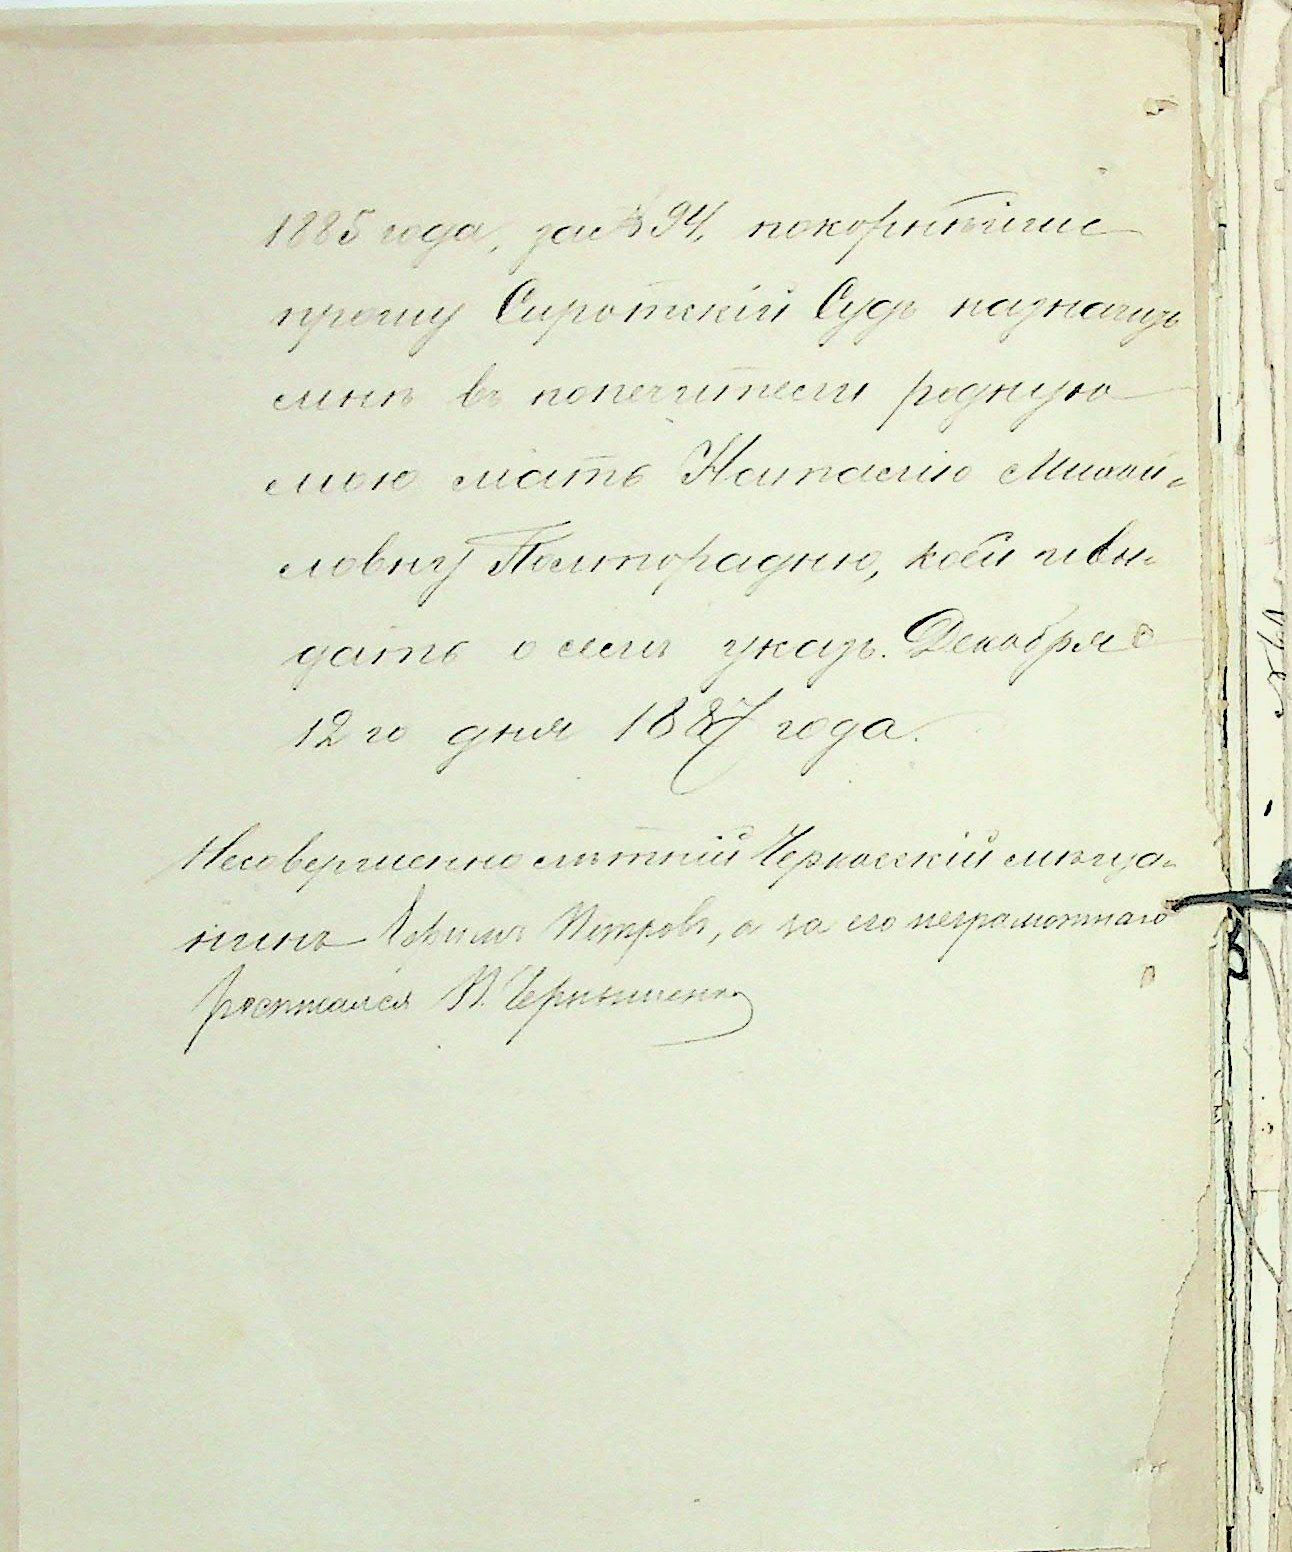 5
1885 года, за № 94, покорнѣйше
прошу Сиротскій Судъ назначить
мнѣ въ попечители родную
мою мать Наталію Михай-
ловну Полторадню, коей и вы-
дать о семъ указъ. Декабря
12 го дня 1887 года.
Несовершеннолѣтній Черкасскій мѣща-
нинъ Петровъ, а за его неграмотнаго
росписался П. Чернышенко